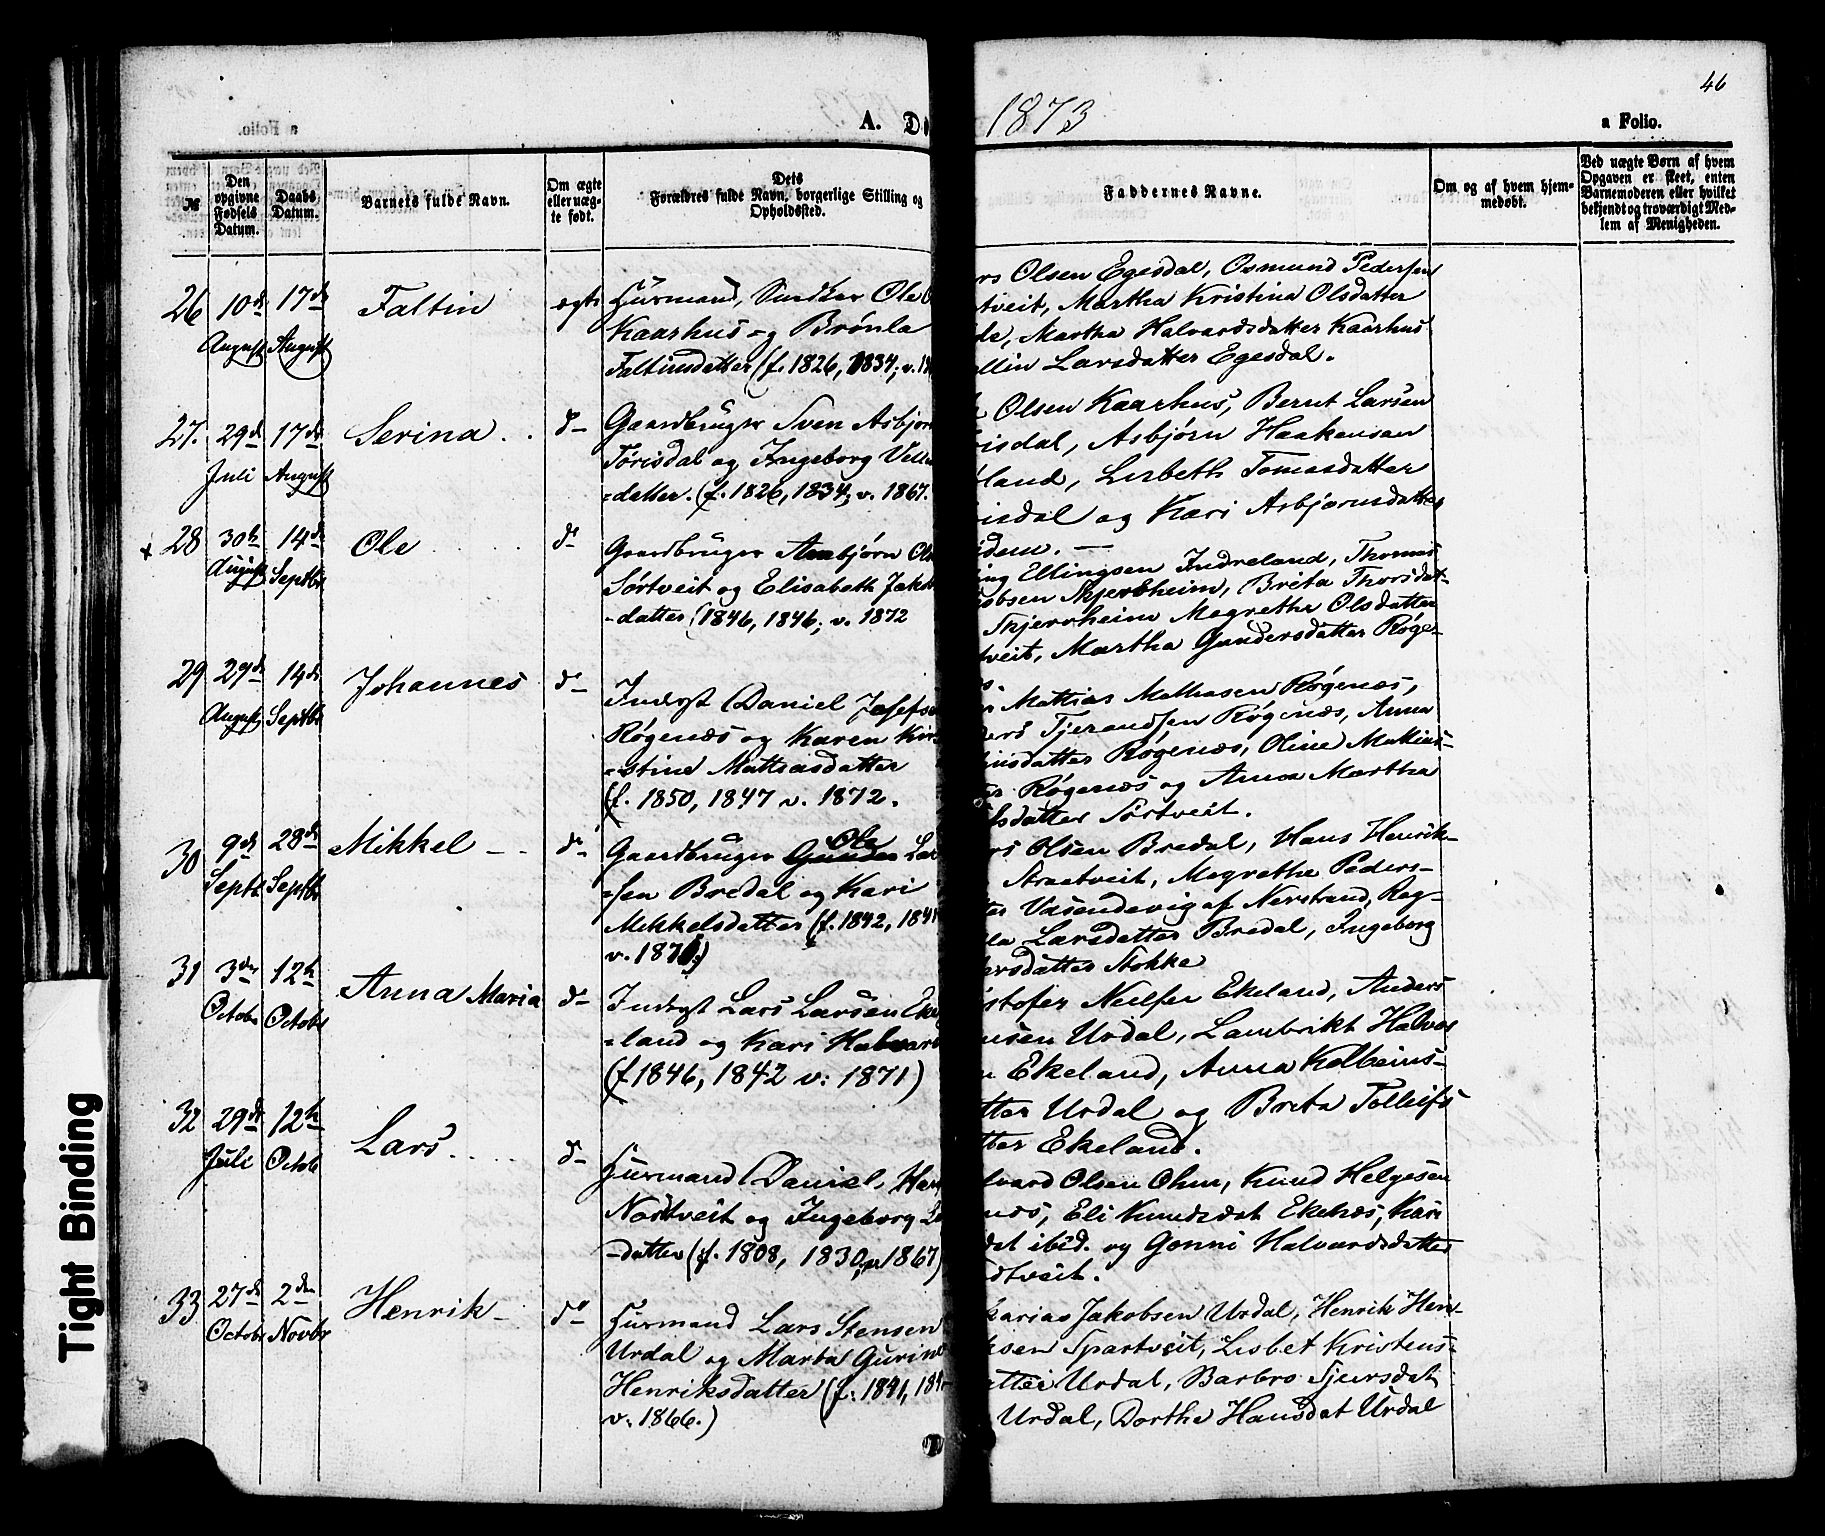 46
A. D
1873
a Folio.
№
Den opgivne Fødsels Datum.
Daabs Datum.
Barnets fulde Navn.
Om ægte eller uægte født.
Dets
Forældres fulde Navn, borgerlige Stilling og
Opholdsted.
Faddernes Navne.
Om og af hvem hjemmedøbt.
Ved uægte Børn af hvem
Opgaven er skeet, enten
Barnemoderen eller hvilket
bekjendt og troværdigt Med-
lem af Menigheden.
26 10de August 17de August Faltin ægte
Huusmand, Snedker Ole
Kaarhus og Brønla
Faltinsdatter (f. 1826, 1834; v.
Olsen Egesdal, Osmund Pedersen
tveit, Martha Kristina Olsdatter
de, Martha Halvardsdatter Kaarhus
ellin Larsdatter Egesdal.
27. 29de Juli 17de August Serina do
Gaardbruger Sven Asbjør
Tørisdal og Ingeborg Vel
-datter. (f. 1826, 1834; v. 1867.
Olsen Kaarhus, Bernt Larsen
risdal, Asbjørn Haakensen
land, Lisbeth Tomasdatter
risdal og Kari Asbjørnsdatter
idem. —
x 28 30te August 14de Septbr Ole do
Gaardbruger Asbjørn Ol
Sørtveit og Elisabeth Jako
-datter (1846, 1846; v. 1872
ing Ellingsen Indreland, Thomas
obsen Skjerrheim, Brita Thorsdat-
Skjerrheim Megrethe Olsdatter
tveit, Martha Gundersdatter Røge-
29 27de August 14de Septbr Johannes do
Inderst Daniel Josefs
Røgenæs og Karen Kir-
-stine Mathiasdatter
(f. 1850, 1847 v. 1872.
Mathias Mathiasen Røgenæs,
ders Tjerandsen Røgenæs, Anna
insdatter Røgenæs, Oline Mathias-
er Røgenæs og Anna Martha
lsdatter Sørtveit.
30 9de Septbr 28de Septbr Mikkel do
Ole
Gaardbruger Gunder Lar
-sen Bredal og Kari
Mikkelsdatter (f. 1842, 184
v. 187)
rs Olsen Bredal, Hans Henrik-
Straatveit, Megrethe Peders-
ter Vasendevig af Nerstrand, Rag-
la Larsdatter Bredal, Ingeborg
dersdatter Stokke
31 3die Octobr 12te Octobr Anna Maria do
Inderst Lars Larsen Eke
-land og Kari Halvard
(f 1846, 1842 v: 1871)
istofer Neilsen Ekeland, Anders
nsen Urdal, Lambrikt Halvor
n Ekeland, Anna Kolbeins-
tter Urdal og Brita Tolleifs
tter Ekeland.
32 29de Juli 12te Octobr Lars do
Huusmand Daniel Han
Nortveit og Ingeborg L
-datter (f. 1808, 1830; v 1867)
lvard Olsen Ohm, Knud Helgesen
næs, Eli Knudsdat Ekenæs, Kari
dat ibid. og Gonni Halvardsdatter
dtveit.
33 27de Octobr 2den Novbr Henrik do
Huusmand Lars Stensen
Urdal og Marta Gurine
Henriksdatter (f: 1841, 184
v: 1866.)
karias Jakobsen Urdal, Henrik Hen-
ksen Spartveit, Lisbet Kristens-
atter Urdal, Barbro Sjursdat
Urdal, Dorthe Hansdat Urdal
Tight Binding